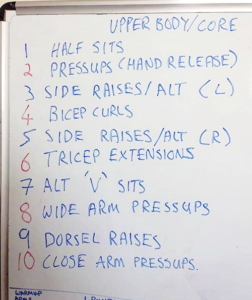 UPPER BODY/CORE
1 HALF SITS
2 PRESSUPS (HAND RELEASE)
3 SIDE RAISES/ALT (L)
4 BICEP CURLS
5 SIDE RAISES/ALT (R)
6 TRICEP EXTENSIONS
7 ALT 'V' SITS
8 WIDE ARM PRESSUPS
9 DORSEL RAISES
10 CLOSE ARM PRESSUPS.
WARMUP